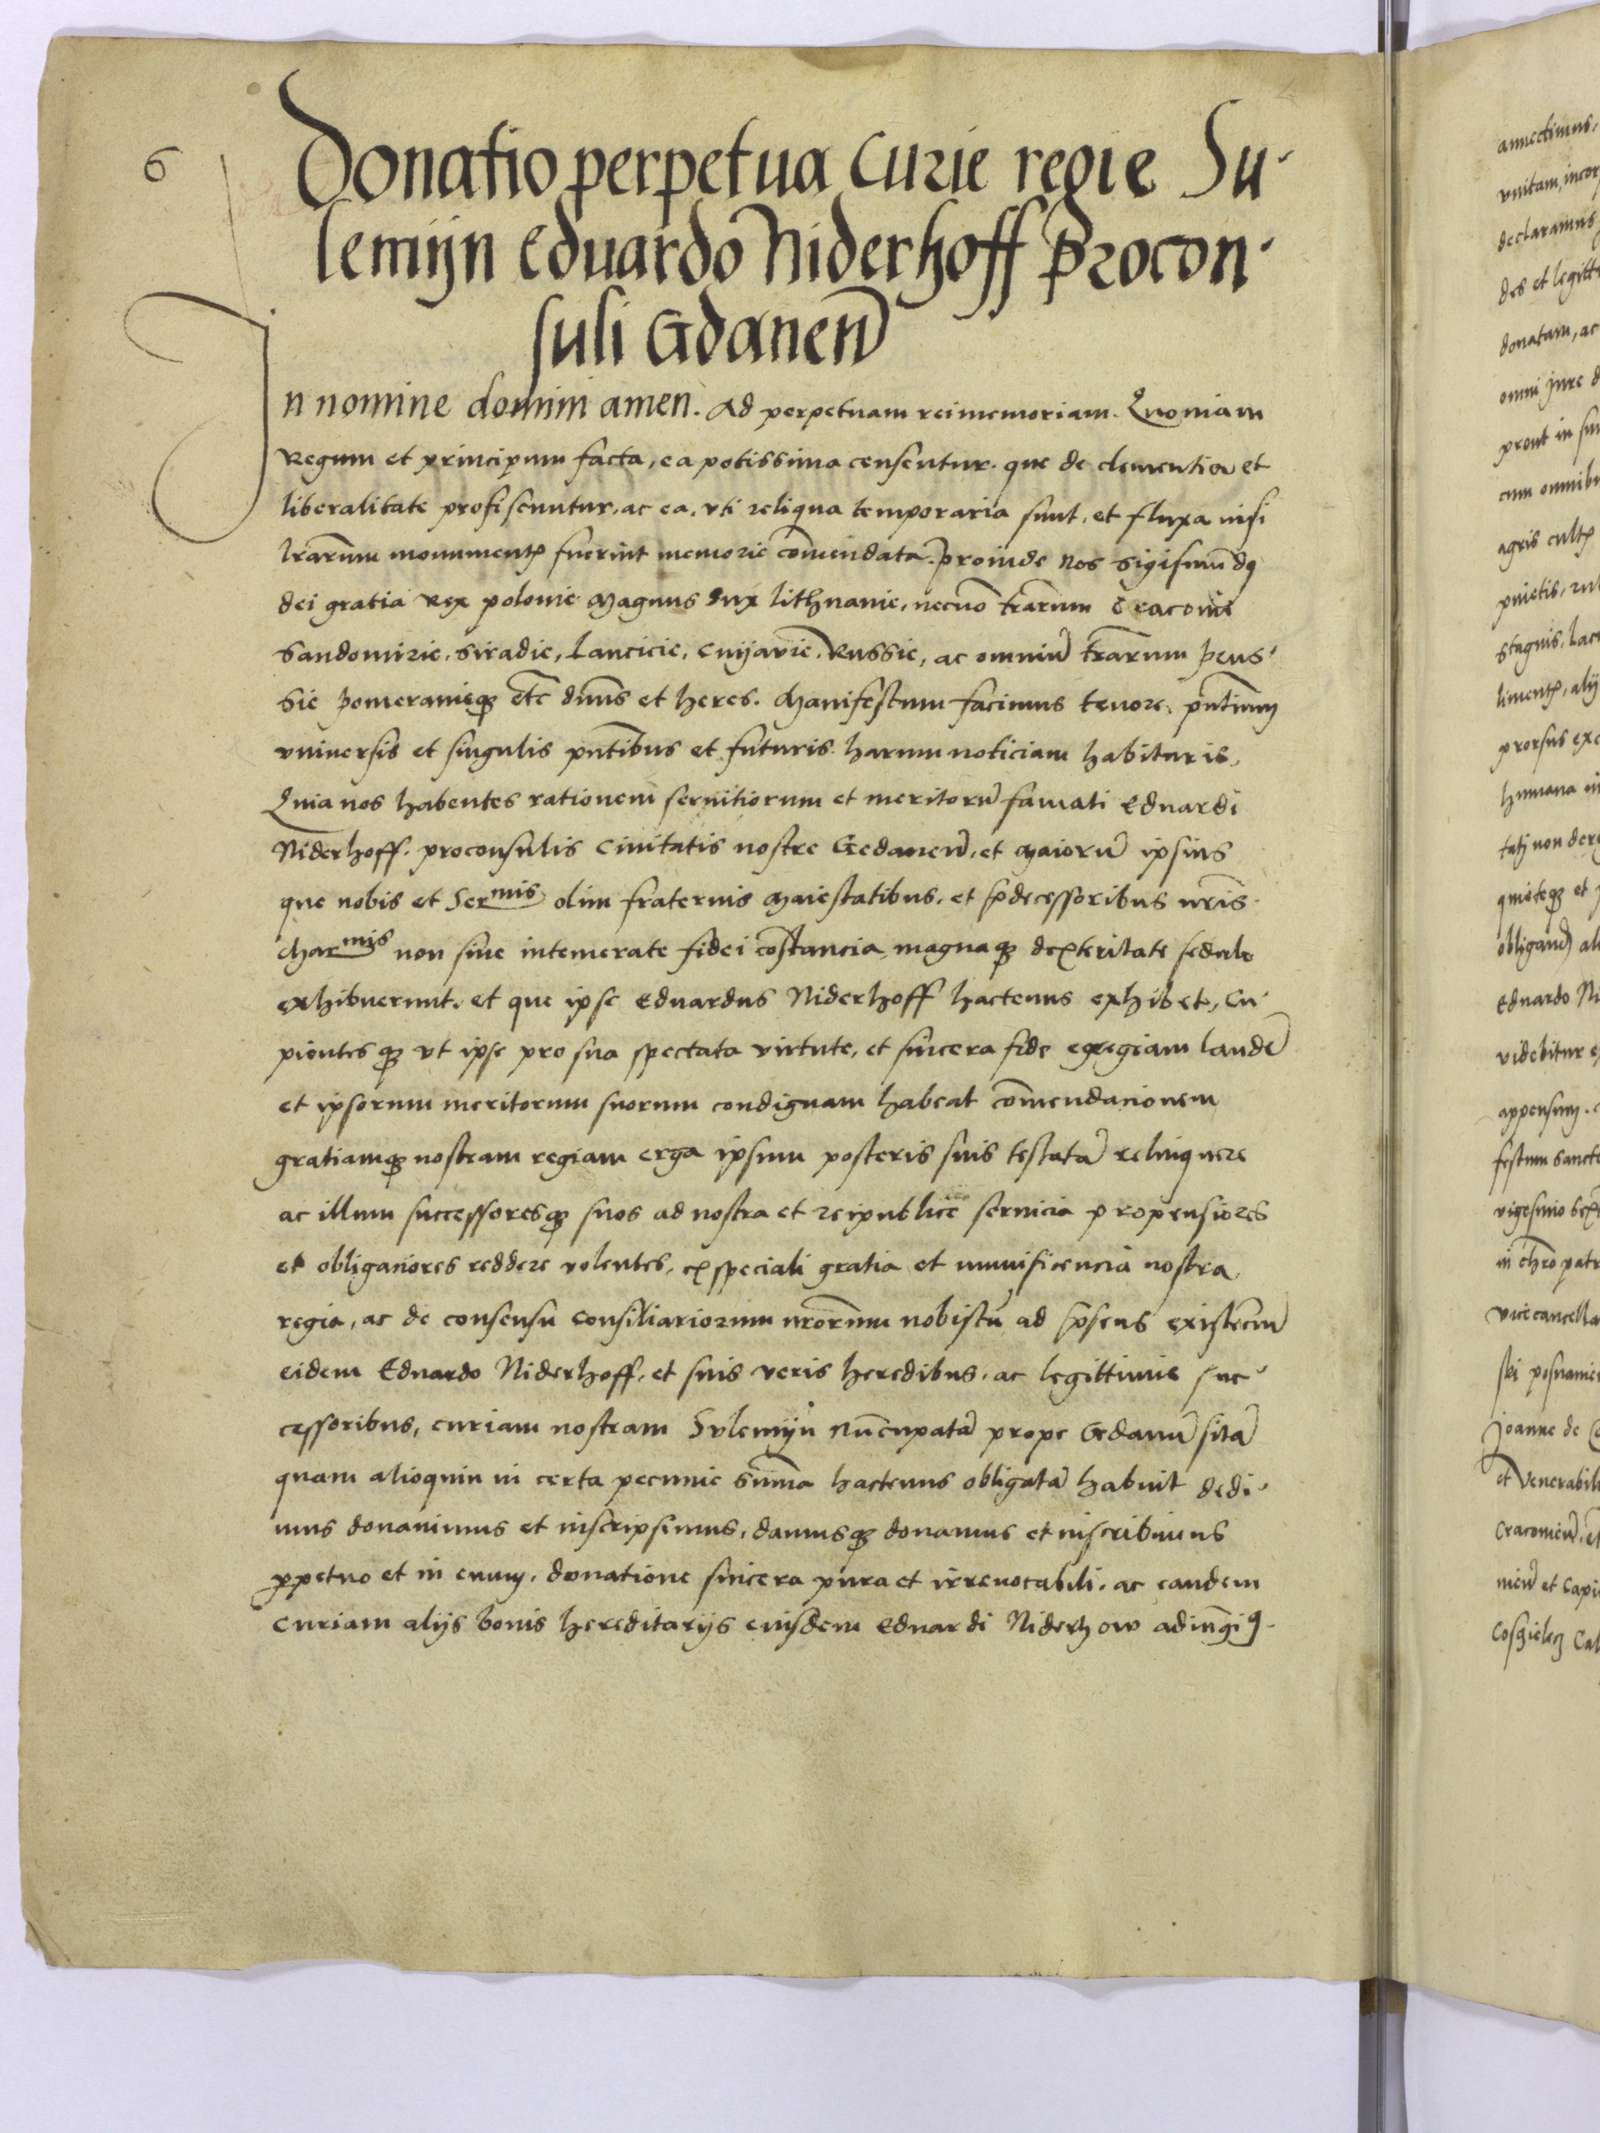 6
Donatio perpetua Curie regie Su-
lemijn Eduardo Niderhoff Procon-
suli Gdaneñ
In nomine domini amen. Ad perpetuam rei memoriam. Quoniam
Regum et principum facta, ea potissima censentur. que de clementia et
liberalitate profiscuntur, ac ea, vti reliqua temporaria sunt, et fluxa nisi
lrarum monumentꝭ fuerint memorie comendata. proinde Nos Sigismundꝰ
dei gratia Rex polonie Magnus dux lithuanie, necnon trarum Cracouie
Sandomirie, Siradie, Lancicie, Cuijavie, Russie, ac omniū trarum prus-
sie pomeranieqꝫ etc dnus et heres. Manifestum facimus tenore pntium
vniuersis et singulis pntibus et futuris harum noticiam habituris,
Quia nos habentes rationem seruitiorum et meritorū famati Eduardi
Niderhoff. proconsulis Ciuitatis nostre Gedaneñ, et maiorū ipsius
que nobis et Sermis olim fraternis Maiestatibus, et predecessoribus nris
Charmis non sine intemerate fidei costancia magnaqꝫ dexteritate sedulo
exhibuerunt, et que ipse Eduardus Niderhoff hactenus exhibet, Cu-
pientesqꝫ vt ipse pro sua spectata virtute, et sincera fide egregiam laudē
et ipsorum meritorum suorum condignam habeat comendacionem
gratiamqꝫ nostram regiam erga ipsum posteris suis testatā relinquere
ac illum successoresqꝫ suos ad nostra et reipublice seruicia propensiores
et obligaciores reddere volentes, ex speciali gratia et munificencia nostra
regia, ac de consensu consiliariorum nrorum nobiscū ad presens existeciū
eidem Eduardo Niderhoff, et suis veris heredibus, ac legittimis suc-
cessoribus, curiam nostram Sulemijn nuncupatā prope Gedanū sitā
quam alioquin in certa pecunie suma hactenus obligatā habuit dedi-
mus donauimus et inscripsimus, damusqꝫ donamus et inscribimus
ꝑpetuo et in euum, donatione sincera pura et irreuocabili, ac eandem
curiam alijs bonis hereditarijs eiusdem Eduardi Niderhow adiungimꝰ
annectimus,
vnitam, incor
declaramus,
des et legitt
donatam, ac
omni jure d
prout in su
cum omnibu
agris cultꝭ
stagnis, lac
limentꝭ, alij
prorsus exc
humana in
quieteqꝫ et
obligand al
Eduardo Ni
videbitur e
appensum.
festum sancte
vigesimo sex
in chro patr
vicecancella
Joanne de
et Venerabil
Cracouieñ, et